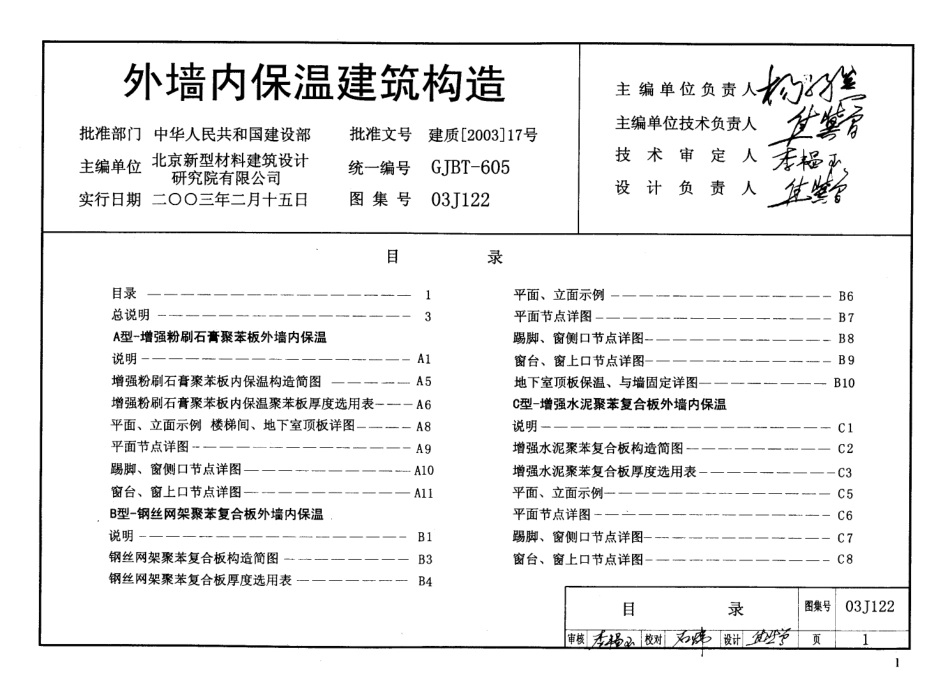 外墙内保温建筑构造
批准部门 中华人民共和国建设部 批准文号 建质[2003]17号
主编单位 北京新型材料建筑设计研究院有限公司 统一编号 GJBT-605
实行日期 二〇〇三年二月十五日 图集号 03J122
主编单位负责人
主编单位技术负责人
技术审定人 李福玉
设计负责人
目 录
目录 1
总说明 3
A型-增强粉刷石膏聚苯板外墙内保温
说明 A1
增强粉刷石膏聚苯板内保温构造简图 A5
增强粉刷石膏聚苯板内保温聚苯板厚度选用表 A6
平面、立面示例 楼梯间、地下室顶板详图 A8
平面节点详图 A9
踢脚、窗侧口节点详图 A10
窗台、窗上口节点详图 A11
B型-钢丝网架聚苯复合板外墙内保温
说明 B1
钢丝网架聚苯复合板构造简图 B3
钢丝网架聚苯复合板厚度选用表 B4
平面、立面示例 B6
平面节点详图 B7
踢脚、窗侧口节点详图 B8
窗台、窗上口节点详图 B9
地下室顶板保温、与墙固定详图 B10
C型-增强水泥聚苯复合板外墙内保温
说明 C1
增强水泥聚苯复合板构造简图 C2
增强水泥聚苯复合板厚度选用表 C3
平面、立面示例 C5
平面节点详图 C6
踢脚、窗侧口节点详图 C7
窗台、窗上口节点详图 C8
目 录 图集号 03J122
审核 李福玉 校对 设计 页 1
1